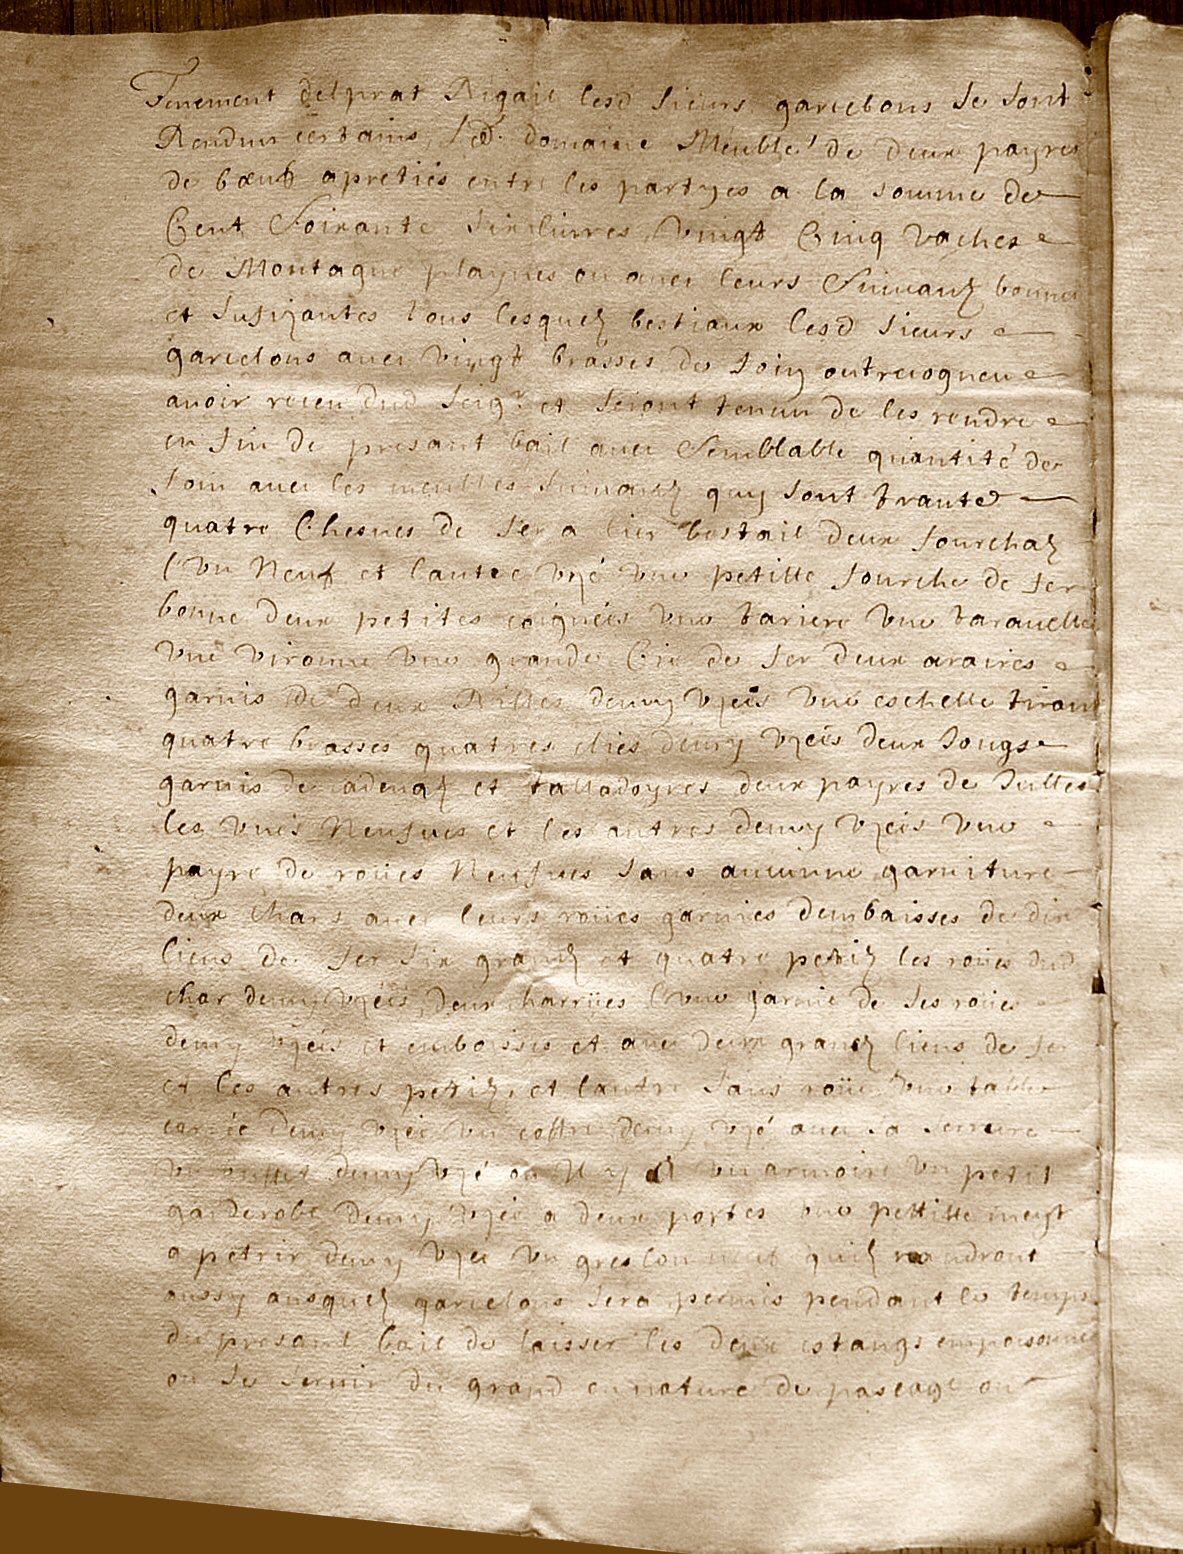 Tenement delprat Rigail lesd sieurs garcelons se sont
Rendus certains, led. domaine Meublé de deux payres
de bœufz apretiés entre les partyes a la somme de
Cent Soixante six livres, vingt Cinq vaches
de Montagne playnes ou avec leurs Suivantz bonnes
et sufizantes tous lesquelz bestiaux lesd sieurs
garcelons avec vingt brasses de foin ont recogneu
avoir receu dud seigr et seront tenus de les rendre
en fin de presant bail avec Semblable quantité de
foin avec les meubles suivantz quy sont trante
quatre Chesnes de fer a lier bestail deux fourchaz
l'un Neuf et lautre uzé une petitte fourche de fer
bonne deux petites coignées une tariere une taravelle
une vironne une grande Cie de fer deux araires
garnis de deux Rilles demy uzeis une eschelle tirant
quatre brasses quatres clies demy uzeés deux Jougs
garnis de iadenaz et talladoyres deux payres de Julles
les unes Neufves et les autres demy uzeis une
payre de roües Neufves sans aucunne garniture
deux chars avec leurs roües garnies d'enbaisses de dix
liens de fer six grandz et quatre petitz les roües dud
char demy uzeis, deux charrües l'une garnie de ses roües
demy uzeis et emboisses et avec deux grandz liens de fer
et les autres petitz, et lautre sans roüe une table
carrée demy uzée un coffre demy uzé avec sa serrure
un buffet demy uzé ou il y a un armoire un petit
garderobe demy uzée a deux portes une pettitte meyt
a petrir demy uzee un greslou neuf quilz randront
aussy ausquelz garcelons sera permis pendant le temps
du presant bail de laisser les deux estangs empoisonnes
ou se servir du grand en nature de pascage ou